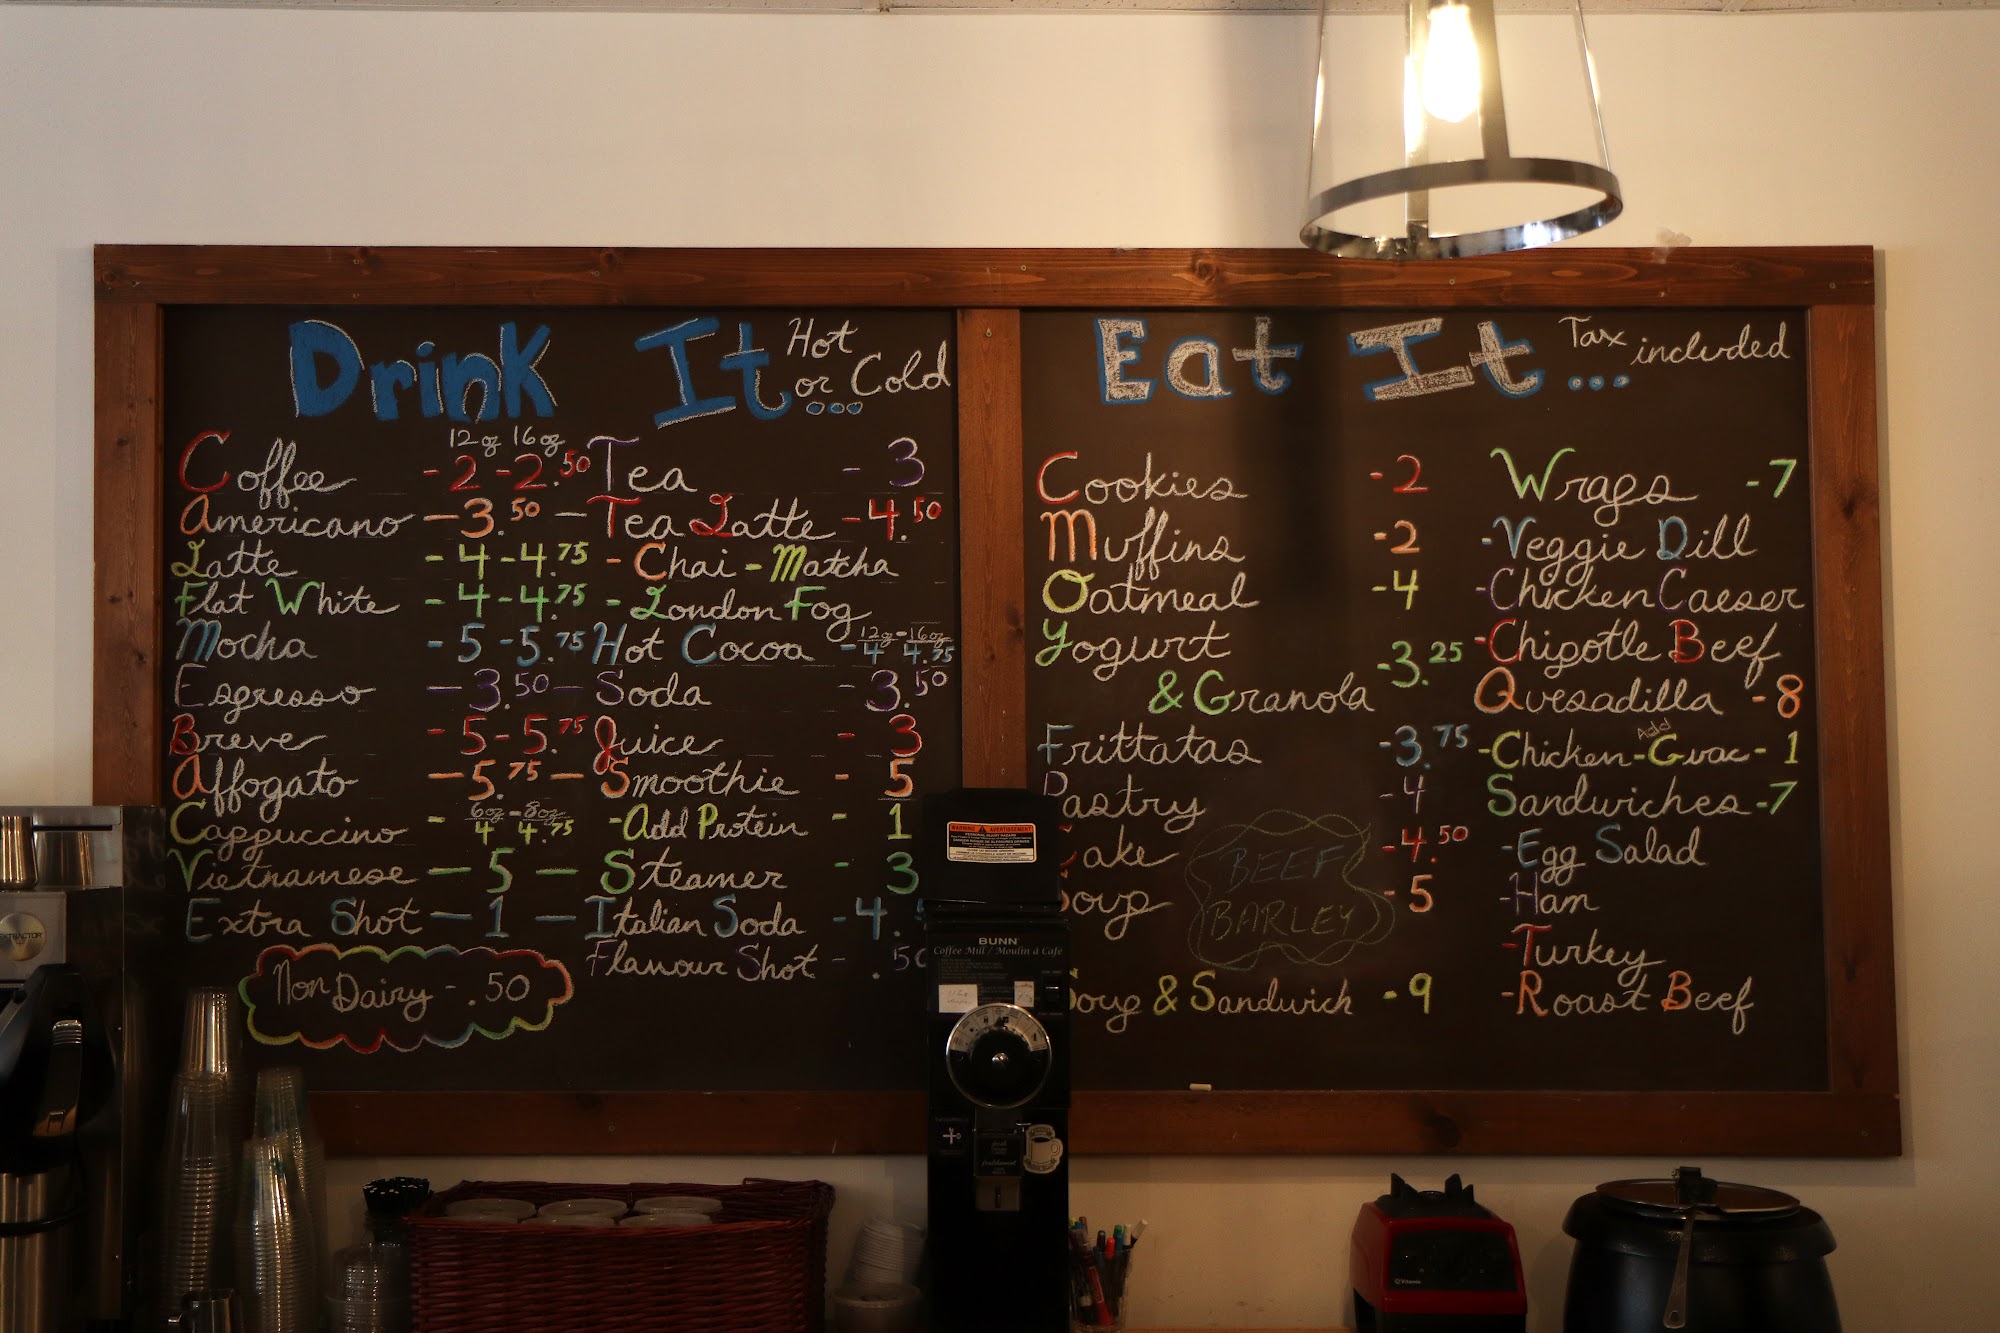 Drink It... Hot or Cold
12oz 16oz
Coffee - 2 - 2.50
Americano - 3.50 -
Latte - 4 - 4.75
Flat White - 4 - 4.75
Mocha - 5 - 5.75
Espresso - 3.50 -
Breve - 5 - 5.75
Affogato - 5.75 -
6oz - 8oz
Cappuccino - 4 4.75
Vietnamese - 5 -
Extra Shot - 1 -
Non Dairy - .50
Tea - 3
Tea Latte - 4.50
- Chai - Matcha
- London Fog
12oz - 16oz
Hot Cocoa - 4 4.75
Soda - 3.50
Juice - 3
Smoothie - 5
- Add Protein - 1
Steamer - 3
Italian Soda - 4.
Flavour Shot - .50
Eat It... Tax included
Cookies - 2
Muffins - 2
Oatmeal - 4
Yogurt
& Granola - 3.25
Frittatas - 3.75
Pastry - 4
Cake - 4.50
Soup - 5
BEEF
BARLEY
Soup & Sandwich - 9
Wraps - 7
- Veggie Dill
- Chicken Caeser
- Chipotle Beef
Quesadilla - 8
Add
- Chicken - Guac - 1
Sandwiches - 7
- Egg Salad
- Ham
- Turkey
- Roast Beef
WARNING AVERTISSEMENT
BUNN
Coffee Mill / Moulin à Café
EXTRACTOR
Vitamix